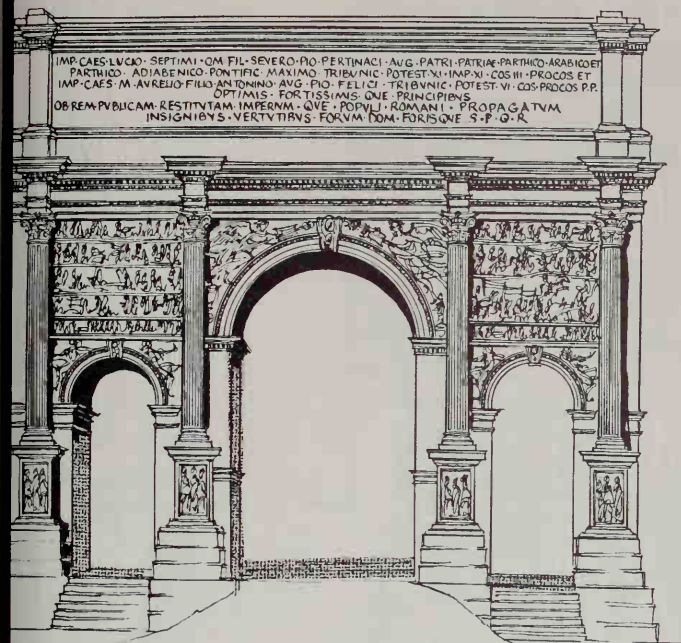 IMP·CAES·LUCIO·SEPTIMI·OM·FIL·SEVERO·PIO·PERTINACI·AUG·PATRI·PATRIAE·PARTHICO·ARABICO ET
PARTHICO·ADIABENICO·PONTIFIC·MAXIMO·TRIBUNIC·POTEST·XI·IMP·XI·COS III·PROCOS ET
IMP·CAES·M·AVRELIO·FILIO·ANTONINO·AVG·PIO·FELICI·TRIBVNIC·POTEST·VI·COS·PROCOS P.P.
OPTIMIS·FORTISSIMIS·QVE·PRINCIPIBVS
OB REM·PVBLICAM·RESTITVTAM·IMPERIVM·QVE·POPVLI·ROMANI·PROPAGATVM
INSIGNIBVS·VERTVTIBVS·FORVM·DOM·FORISQVE S·P·Q·R